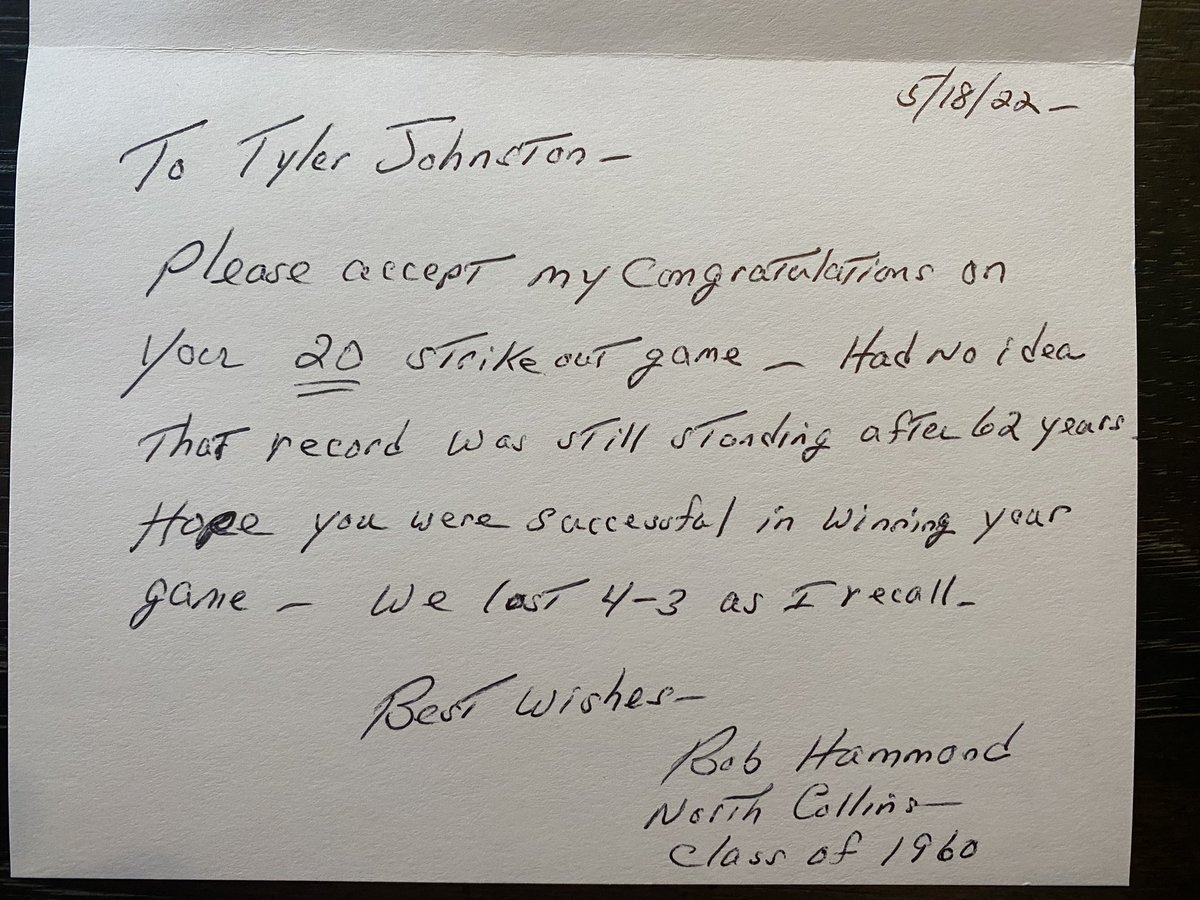 5/18/22-
To Tyler Johnston-
Please accept my Congratulations on
your 20 strikeout game - Had no idea
that record was still standing after 62 years.
Hope you were successful in winning your
game - We lost 4-3 as I recall-
Best Wishes-
Bob Hammond
North Collins-
Class of 1960